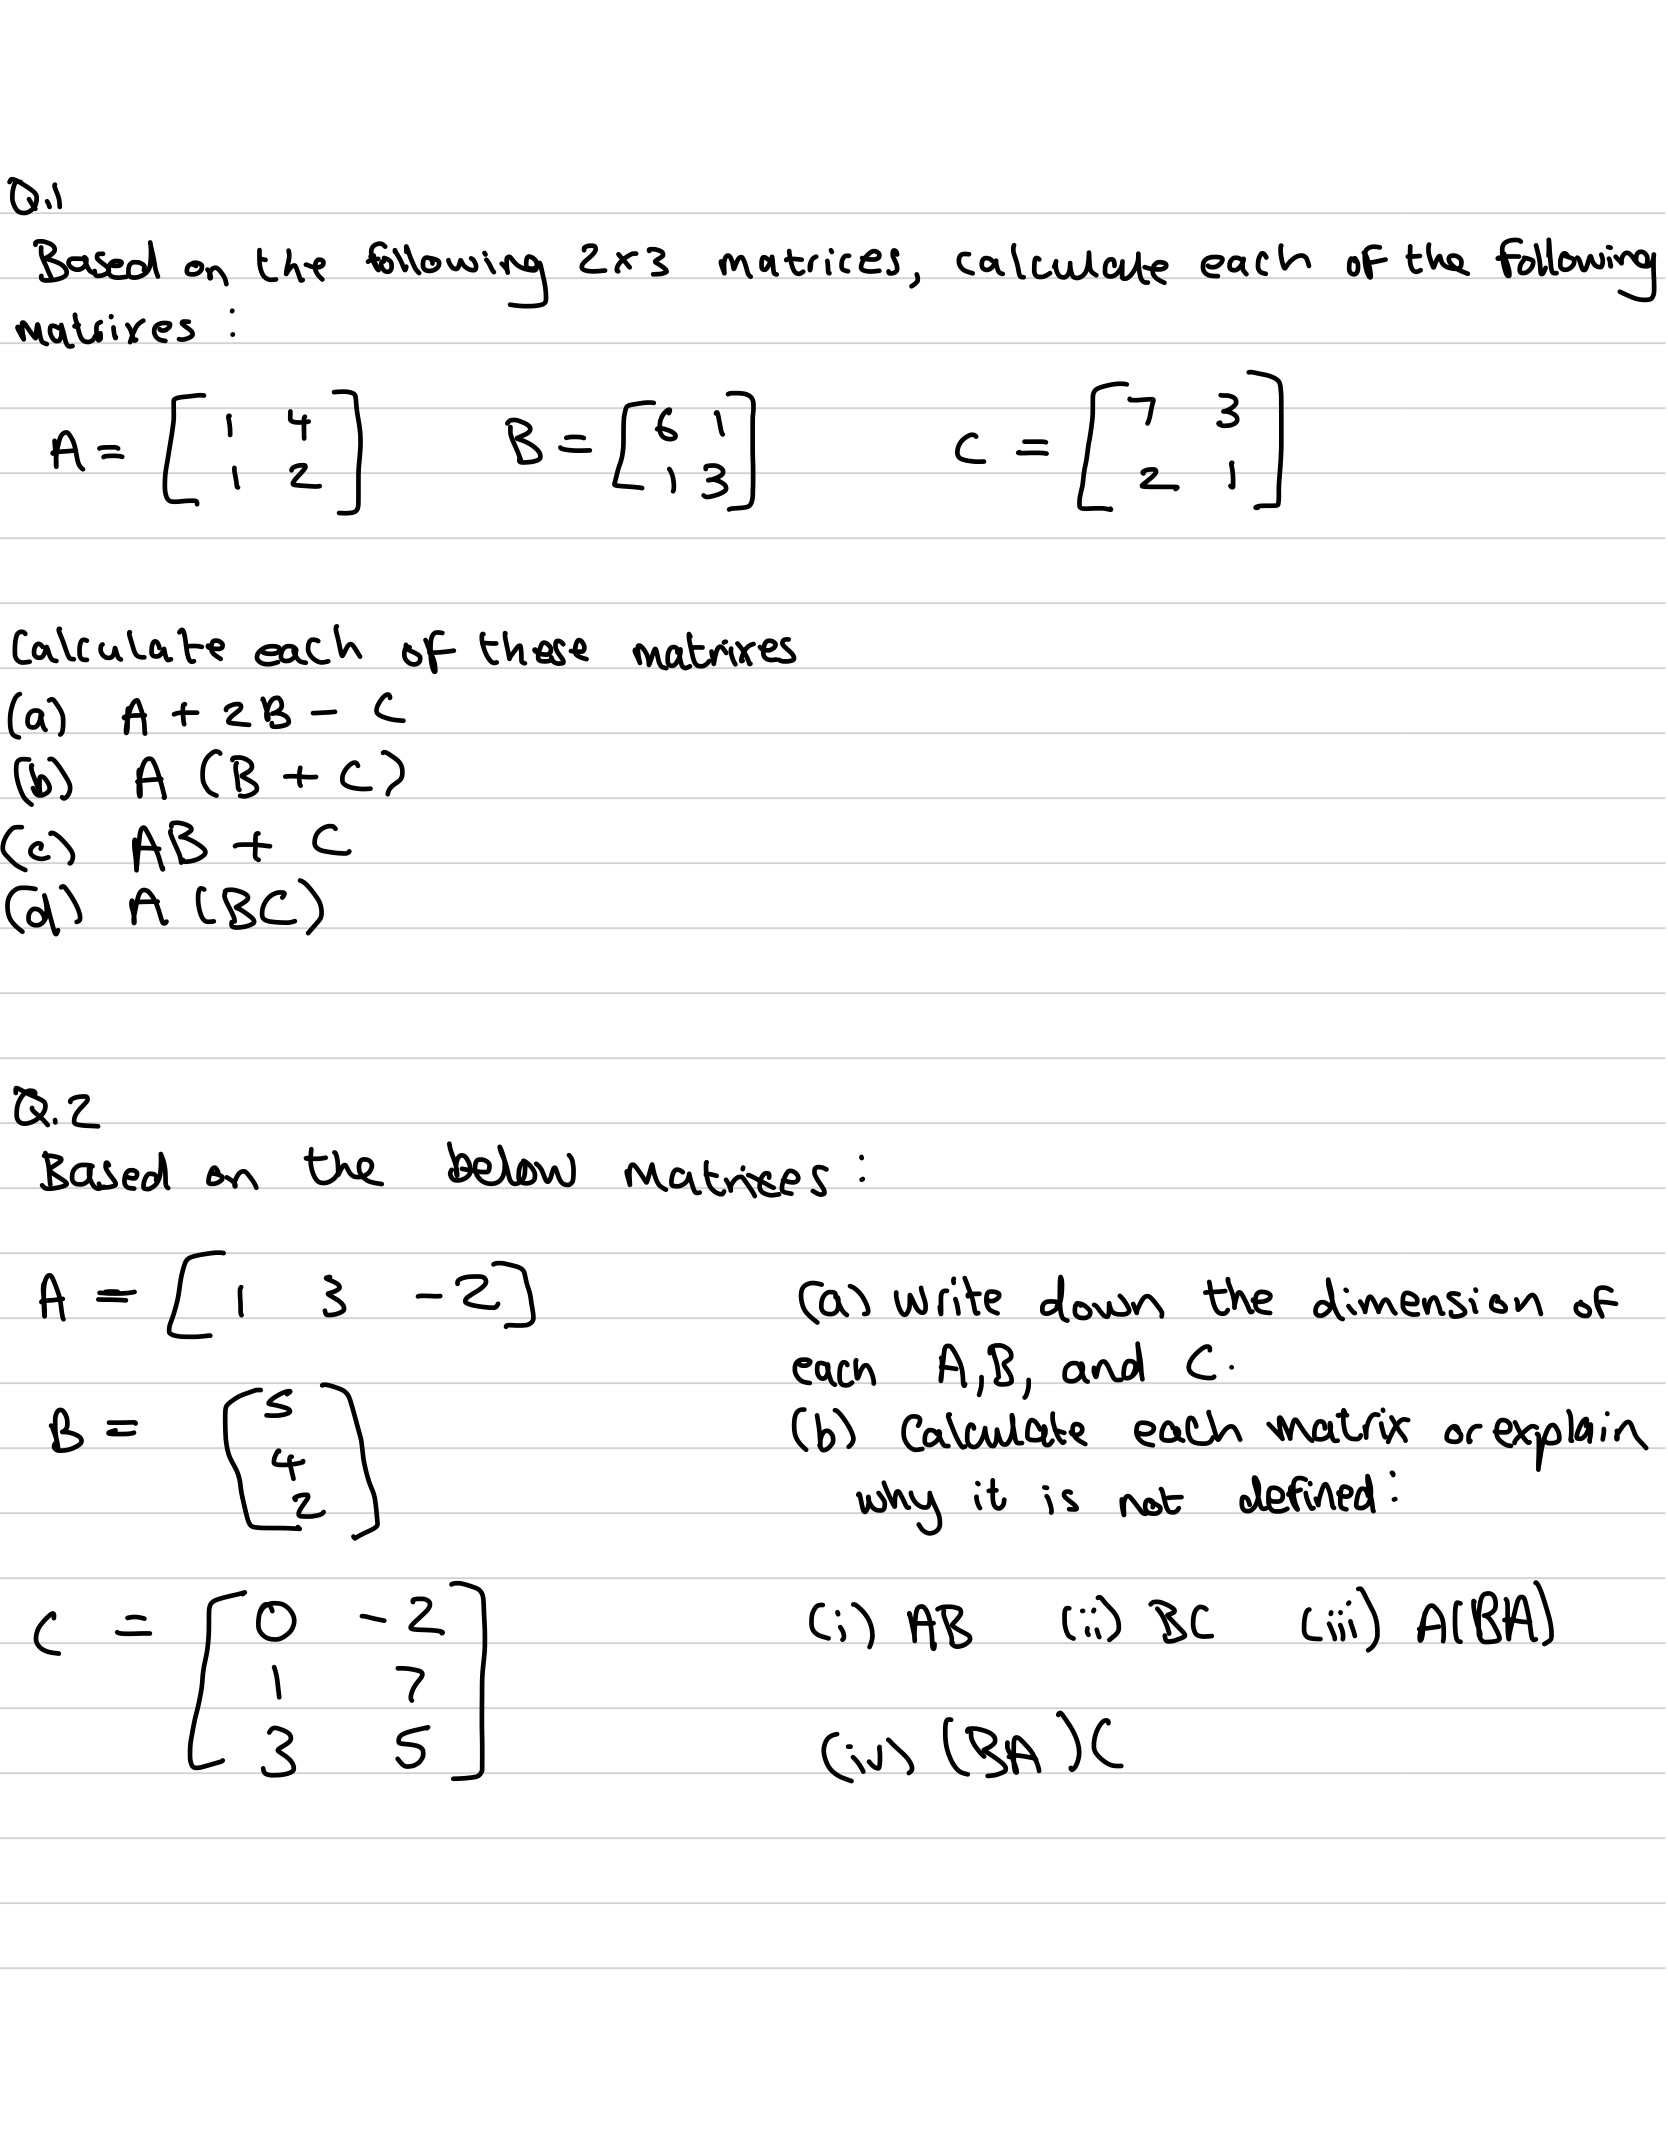 Q.1
Based on the following 2x3 matrices, calculate each of the following
matrixes :
A = [ 1 4
1 2 ] B = [ 6 1
1 3 ] C = [ 7 3
2 1 ]
Calculate each of these matrixes
(a) A + 2B - C
(b) A (B + C)
(c) AB + C
(d) A (BC)
Q.2
Based on the below matrices :
A = [ 1 3 -2 ]
B = [ 5
4
2 ]
C = [ 0 -2
1 7
3 5 ]
(a) Write down the dimension of
each A, B, and C.
(b) Calculate each matrix or explain
why it is not defined:
(i) AB (ii) BC (iii) A(BA)
(iv) (BA)C